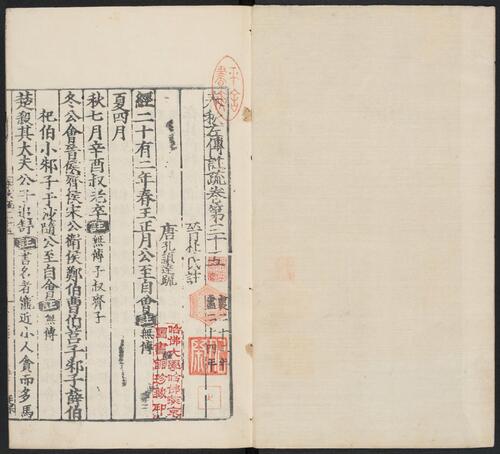 春秋左傳註疏卷第三十五
晉杜氏註
唐孔穎達疏
襄二十二年
盡二十四年
經二十有二年春王正月公至自會註無傳
夏四月
秋七月辛酉叔老卒註無傳子叔齊子
冬公會晉侯齊侯宋公衛侯鄭伯曹伯莒子邾子薛伯
杞伯小邾子于沙隨公至自會註無傳
楚殺其大夫公子追舒註書名者寵近小人貪而多馬
哈佛大學哈佛燕京
圖書館珍藏印